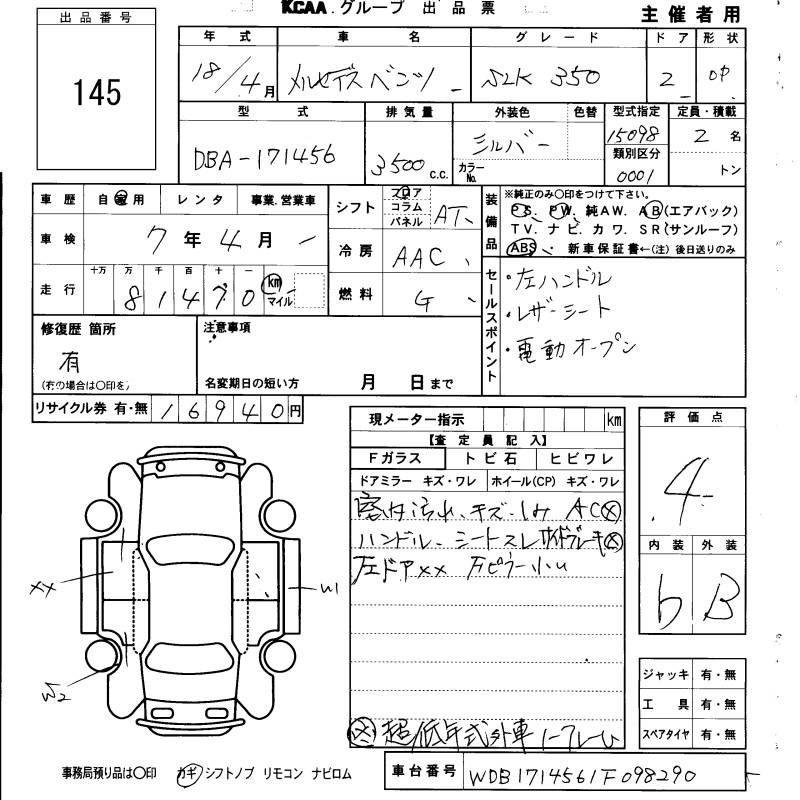 KCAA.グループ 出品票
主催者用
出品番号
145
年式 車名 グレード ドア 形状
18/4月 メルセデスベンツ SLK 350 2 OP
型式 排気量 外装色 色替 型式指定 定員・積載
DBA-171456 3500 c.c. シルバー 15098 2 名
カラーNo. 類別区分 0001 トン
車歴 自家用 レンタ 事業.営業車
シフト フロア コラム パネル AT
車検 7年4月
冷房 AAC
走行 十万 万 千 百 十 一
81470 km マイル
燃料 G
装備品 ※純正のみ〇印をつけて下さい。
P.S. P.W. 純AW. AB(エアバック)
TV. ナビ. カワ. SR(サンルーフ)
ABS 新車保証書←(注)後日送りのみ
セールスポイント
・左ハンドル
・レザーシート
・電動オープン
修復歴 箇所
有
(有の場合は〇印を)
注意事項
名変期日の短い方 月 日まで
リサイクル券 有・無 16940円
現メーター指示 km
【査定員記入】
Fガラス トビ石 ヒビワレ
ドアミラー キズ・ワレ ホイール(CP) キズ・ワレ
汚れ、キズ・しみ AC
ハンドル、シートスレ サイドブレーキ
左ドアXX 小U
超低年式外車 ノークレーム
評価点
4
内装 外装
b B
XX
W1
W2
ジャッキ 有・無
工具 有・無
スペアタイヤ 有・無
事務局預り品は〇印 カギ シフトノブ リモコン ナビロム
車台番号 WDB1714561F098290